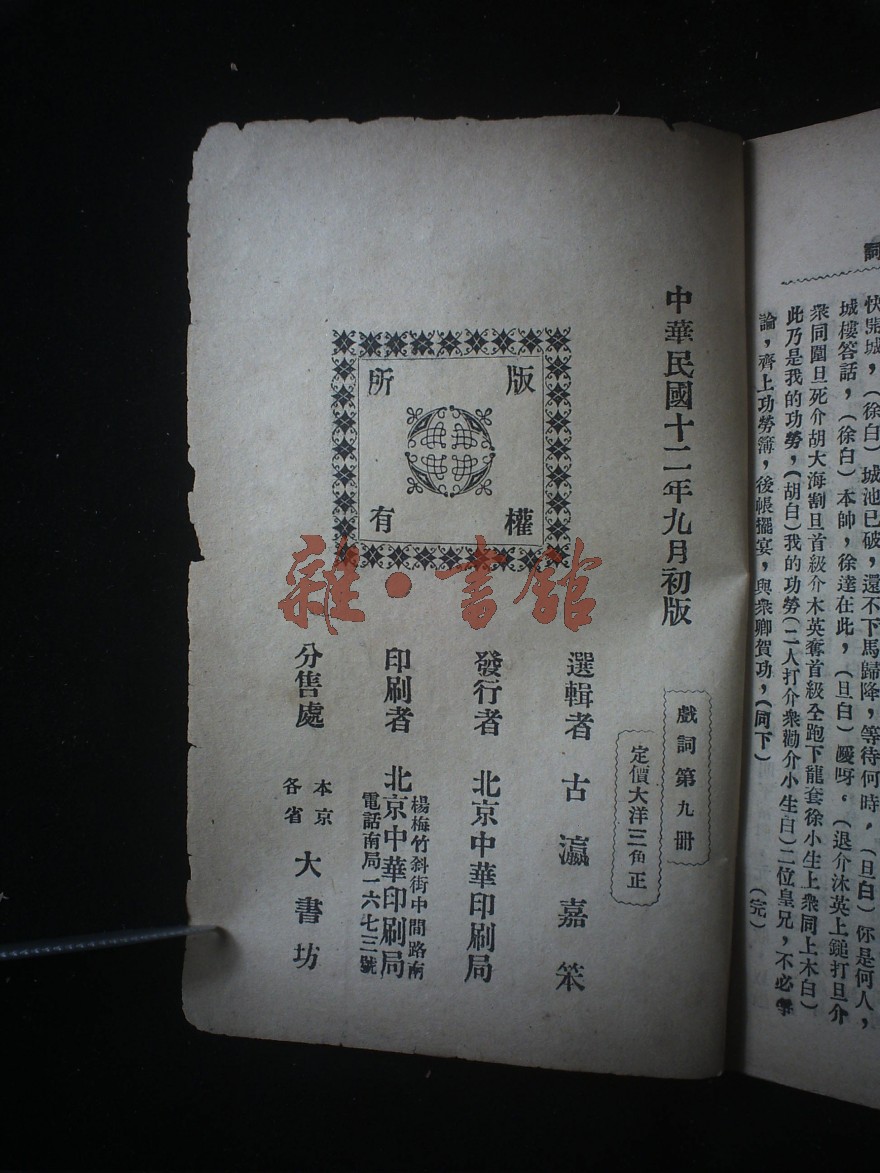 詞
快開城，（徐白）城池已破，還不下馬歸降，等待何時，（旦白）你是何人，
城樓答話，（徐白）本帥，徐達在此，（旦白）噯呀，（退介沐英上鎚打旦介
衆同圍旦死介胡大海割旦首級介木英奪首級全跑下龍套徐小生上衆同上木白）
此乃是我的功勞，（胡白）我的功勞（二人打介衆勸介小生白）二位皇兄，不必爭
論，齊上功勞簿，後帳擺宴，與衆卿賀功，（同下）
（完）
中華民國十二年九月初版
戲詞第九册
定價大洋三角正
版權所有
選輯者 古瀛嘉笨
發行者 北京中華印刷局
印刷者 北京中華印刷局
楊梅竹斜街中間路南
電話南局一六七三號
分售處 本京各省大書坊
雜·書館